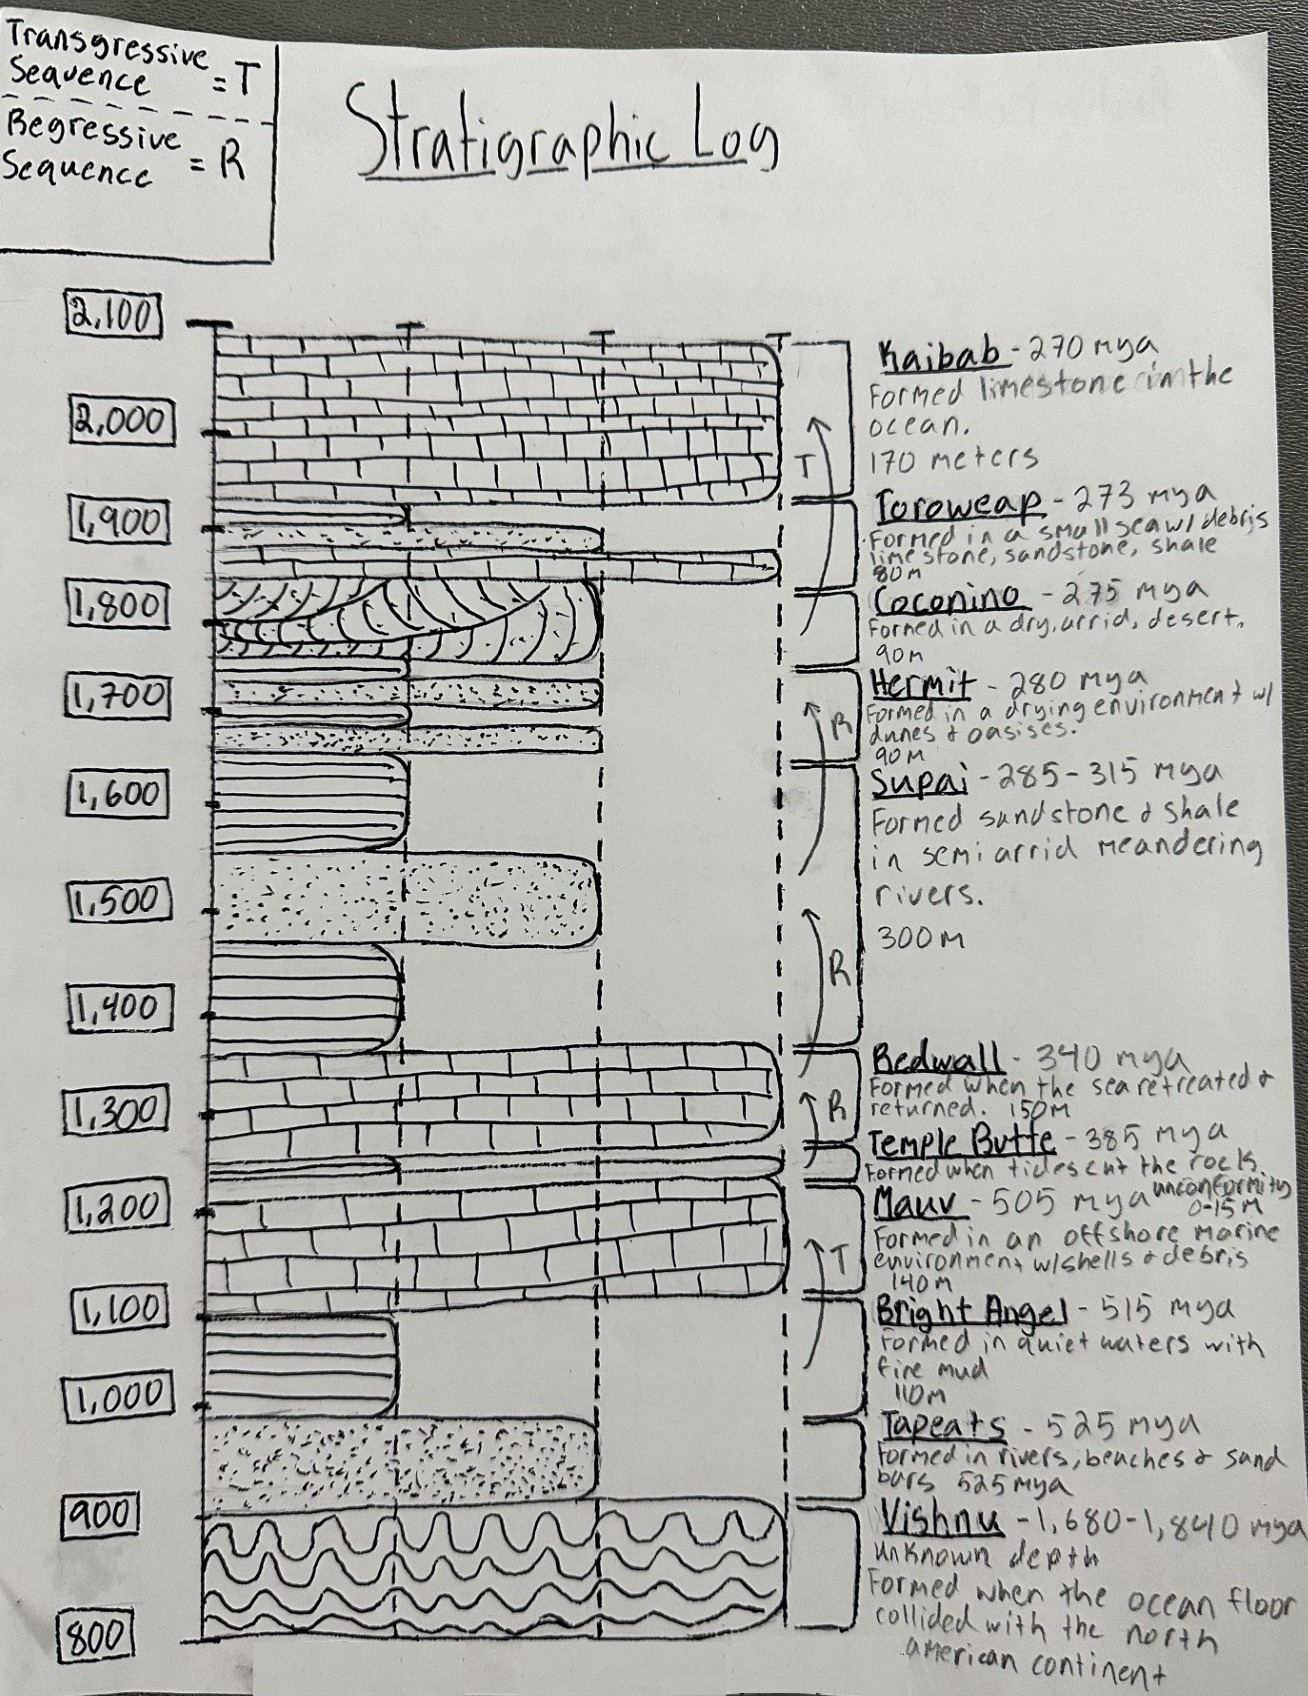 Transgressive
Sequence = T
Regressive
Sequence = R
Stratigraphic Log
2,100
2,000
1,900
1,800
1,700
1,600
1,500
1,400
1,300
1,200
1,100
1,000
900
800
T
R
R
R
T
Kaibab - 270 mya
Formed limestone in the
ocean.
170 meters
Toroweap - 273 mya
Formed in a small sea w/ debris
limestone, sandstone, shale
80m
Coconino - 275 mya
Formed in a dry, arrid, desert.
90m
Hermit - 280 mya
Formed in a drying environment w/
dunes & oasises.
90m
Supai - 285-315 mya
Formed sandstone & shale
in semi arrid meandering
rivers.
300m
Redwall - 340 mya
Formed when the sea retreated &
returned. 150m
Temple Butte - 385 mya
Formed when tides cut the rock.
unconformity
0-15m
Mauv - 505 mya
Formed in an offshore marine
environment w/shells & debris
140m
Bright Angel - 515 mya
Formed in quiet waters with
fine mud
110m
Tapeats - 525 mya
Formed in rivers, beaches & sand
bars 525 mya
Vishnu - 1,680-1,840 mya
unknown depth
Formed when the ocean floor
collided with the north
american continent